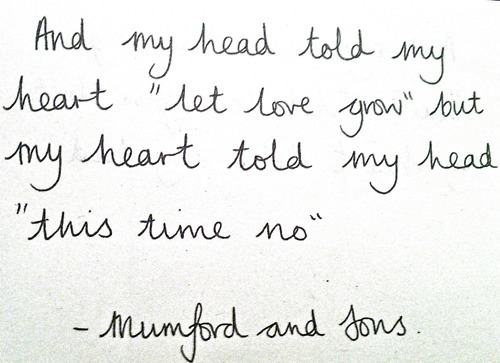 And my head told my
heart "let love grow" but
my heart told my head
"this time no"
- Mumford and Sons.